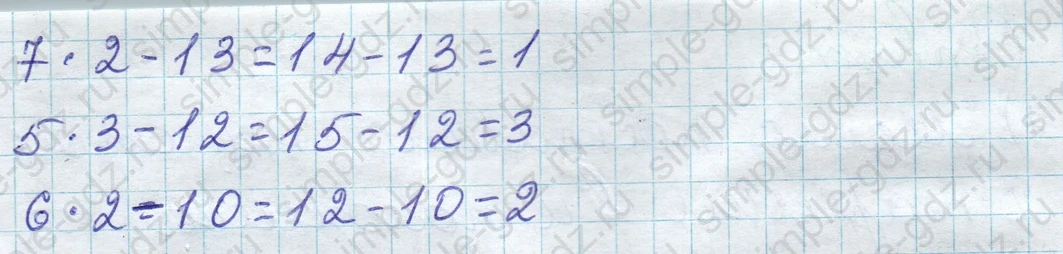 7 · 2 - 13 = 14 - 13 = 1
5 · 3 - 12 = 15 - 12 = 3
6 · 2 - 10 = 12 - 10 = 2
simple-gdz.ru